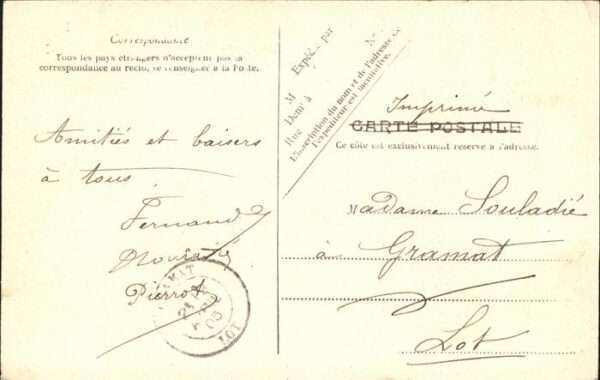 Correspondance
Tous les pays étrangers n'acceptent pas la
correspondance au recto, se renseigner à la Poste.
Amitiés et baisers
à tous
Fernand
Pierrot
GRAMAT
LOT
Expédié par
M
Demt à
Rue
N°
L'inscription du nom et de l'adresse de
l'expéditeur est facultative.
Imprimé
CARTE POSTALE
Ce côté est exclusivement réservé à l'adresse.
Madame Souladié
à Gramat
Lot